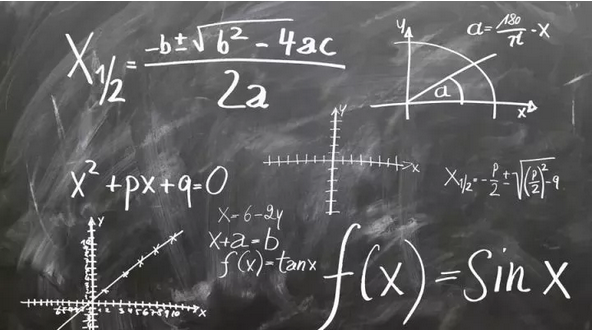 X₁/₂ = (-b ± √(b² - 4ac)) / 2a
y
a = 180/π · x
a
x
y
x
x² + px + q = 0
X₁/₂ = -p/2 ± √((p/2)² - q)
x = 6 - 2y
x + a = b
f(x) = tanx
f(x) = Sin x
y
x